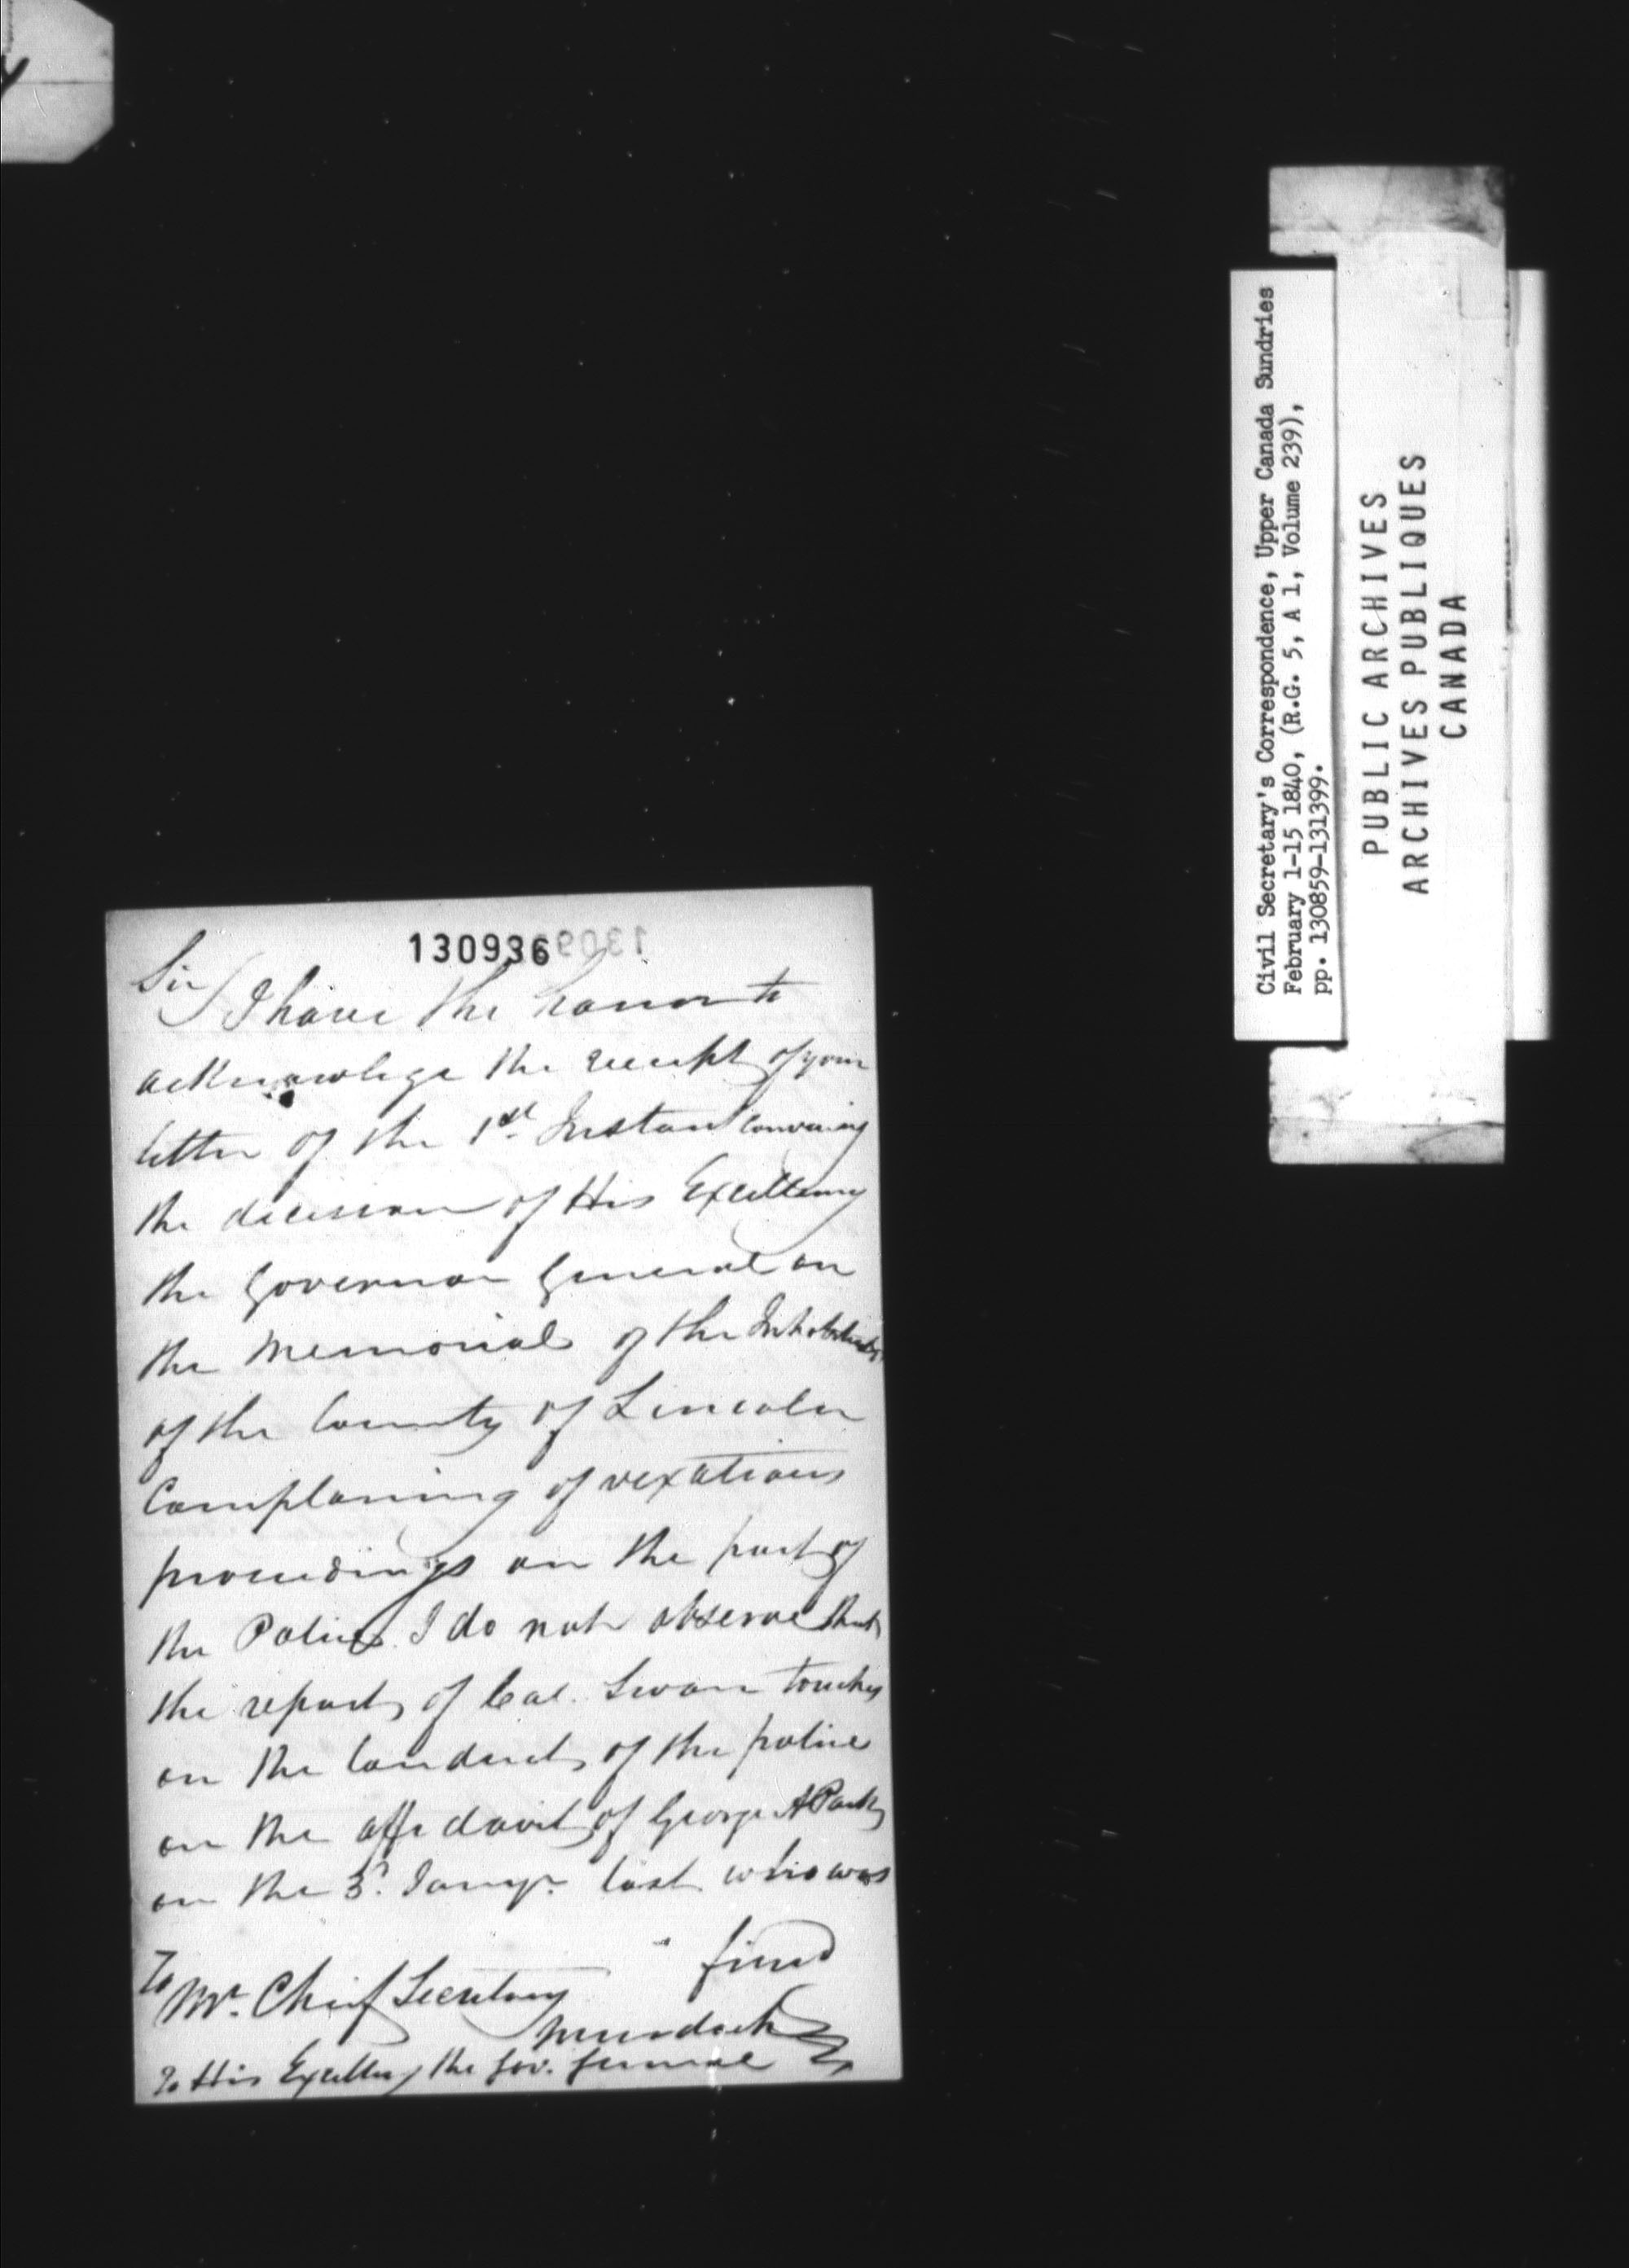 130936
Sir/ I have the honor to
acknowledge the receipt of your
letter of the 1st. Instant conveying
the decision of His Excellency
the Governor General on
the Memorial of the Inhabitants
of the County of Lincoln
Complaning of vexatious
proceedings on the part of
the Police. I do not observe that
the report of Col. Swan touches
on the Conduct of the police
on the affidavit of George A Park
on the 3d. Jany. last who was
fined
To Mr. Chief Secretary
Murdoch
To His Excellency the Gov. General
Civil Secretary's Correspondence, Upper Canada Sundries
February 1-15 1840, (R.G. 5, A 1, Volume 239),
pp. 130859-131399.
PUBLIC ARCHIVES
ARCHIVES PUBLIQUES
CANADA